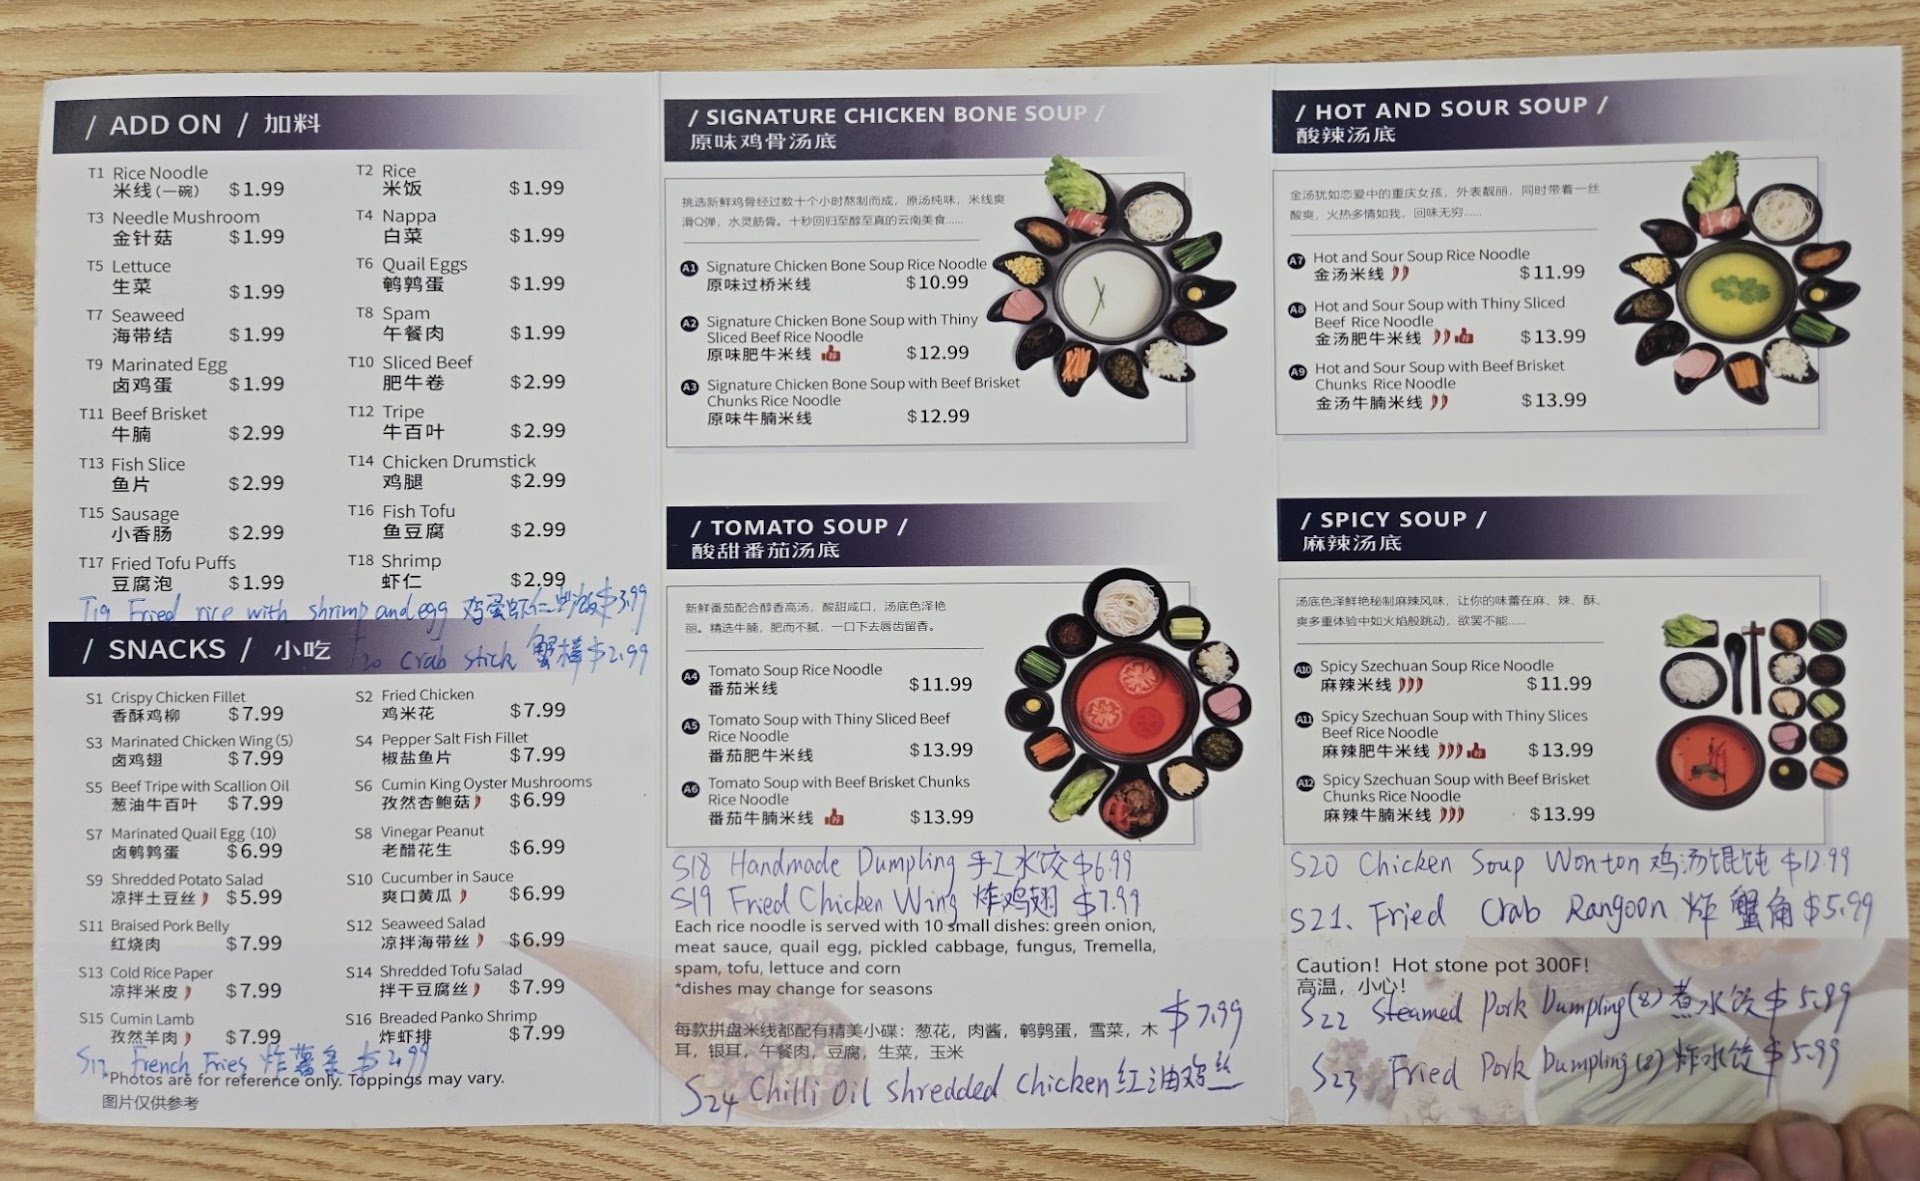 / ADD ON / 加料
T1 Rice Noodle
米线(一碗) $1.99
T2 Rice
米饭 $1.99
T3 Needle Mushroom
金针菇 $1.99
T4 Nappa
白菜 $1.99
T5 Lettuce
生菜 $1.99
T6 Quail Eggs
鹌鹑蛋 $1.99
T7 Seaweed
海带结 $1.99
T8 Spam
午餐肉 $1.99
T9 Marinated Egg
卤鸡蛋 $1.99
T10 Sliced Beef
肥牛卷 $2.99
T11 Beef Brisket
牛腩 $2.99
T12 Tripe
牛百叶 $2.99
T13 Fish Slice
鱼片 $2.99
T14 Chicken Drumstick
鸡腿 $2.99
T15 Sausage
小香肠 $2.99
T16 Fish Tofu
鱼豆腐 $2.99
T17 Fried Tofu Puffs
豆腐泡 $1.99
T18 Shrimp
虾仁 $2.99
T19 Fried rice with shrimp and egg 鸡蛋虾仁炒饭 $3.99
/ SNACKS / 小吃
20 Crab stick 蟹棒 $2.99
S1 Crispy Chicken Fillet
香酥鸡柳 $7.99
S2 Fried Chicken
鸡米花 $7.99
S3 Marinated Chicken Wing (5)
卤鸡翅 $7.99
S4 Pepper Salt Fish Fillet
椒盐鱼片 $7.99
S5 Beef Tripe with Scallion Oil
葱油牛百叶 $7.99
S6 Cumin King Oyster Mushrooms
孜然杏鲍菇 $6.99
S7 Marinated Quail Egg (10)
卤鹌鹑蛋 $6.99
S8 Vinegar Peanut
老醋花生 $6.99
S9 Shredded Potato Salad
凉拌土豆丝 $5.99
S10 Cucumber in Sauce
爽口黄瓜 $6.99
S11 Braised Pork Belly
红烧肉 $7.99
S12 Seaweed Salad
凉拌海带丝 $6.99
S13 Cold Rice Paper
凉拌米皮 $7.99
S14 Shredded Tofu Salad
拌干豆腐丝 $7.99
S15 Cumin Lamb
孜然羊肉 $7.99
S16 Breaded Panko Shrimp
炸虾排 $7.99
S17 French Fries 炸薯条 $2.99
*Photos are for reference only. Toppings may vary.
图片仅供参考
/ SIGNATURE CHICKEN BONE SOUP /
原味鸡骨汤底
挑选新鲜鸡骨经过数十个小时熬制而成，原汤纯味，米线爽
滑Q弹，水灵筋骨。十秒回归至醇至真的云南美食......
A1 Signature Chicken Bone Soup Rice Noodle
原味过桥米线 $10.99
A2 Signature Chicken Bone Soup with Thiny
Sliced Beef Rice Noodle
原味肥牛米线 荐 $12.99
A3 Signature Chicken Bone Soup with Beef Brisket
Chunks Rice Noodle
原味牛腩米线 $12.99
/ TOMATO SOUP /
酸甜番茄汤底
新鲜番茄配合醇香高汤，酸甜咸口，汤底色泽艳
丽。精选牛腩，肥而不腻，一口下去唇齿留香。
A4 Tomato Soup Rice Noodle
番茄米线 $11.99
A5 Tomato Soup with Thiny Sliced Beef
Rice Noodle
番茄肥牛米线 $13.99
A6 Tomato Soup with Beef Brisket Chunks
Rice Noodle
番茄牛腩米线 荐 $13.99
S18 Handmade Dumpling 手工水饺 $6.99
S19 Fried Chicken Wing 炸鸡翅 $7.99
Each rice noodle is served with 10 small dishes: green onion,
meat sauce, quail egg, pickled cabbage, fungus, Tremella,
spam, tofu, lettuce and corn
*dishes may change for seasons
每款拼盘米线都配有精美小碟：葱花，肉酱，鹌鹑蛋，雪菜，木
耳，银耳，午餐肉，豆腐，生菜，玉米
$7.99
S24 Chilli Oil shredded Chicken 红油鸡丝
/ HOT AND SOUR SOUP /
酸辣汤底
金汤犹如恋爱中的重庆女孩，外表靓丽，同时带着一丝
酸爽，火热多情如我，回味无穷......
A7 Hot and Sour Soup Rice Noodle
金汤米线 $11.99
A8 Hot and Sour Soup with Thiny Sliced
Beef Rice Noodle
金汤肥牛米线 荐 $13.99
A9 Hot and Sour Soup with Beef Brisket
Chunks Rice Noodle
金汤牛腩米线 $13.99
/ SPICY SOUP /
麻辣汤底
汤底色泽鲜艳秘制麻辣风味，让你的味蕾在麻、辣、酥、
爽多重体验中如火焰般跳动，欲罢不能......
A10 Spicy Szechuan Soup Rice Noodle
麻辣米线 $11.99
A11 Spicy Szechuan Soup with Thiny Slices
Beef Rice Noodle
麻辣肥牛米线 荐 $13.99
A12 Spicy Szechuan Soup with Beef Brisket
Chunks Rice Noodle
麻辣牛腩米线 $13.99
S20 Chicken Soup Wonton 鸡汤馄饨 $12.99
S21. Fried Crab Rangoon 炸蟹角 $5.99
Caution! Hot stone pot 300F!
高温，小心!
S22 Steamed Pork Dumpling(8) 煮水饺 $5.99
S23 Fried Pork Dumpling(8) 炸水饺 $5.99